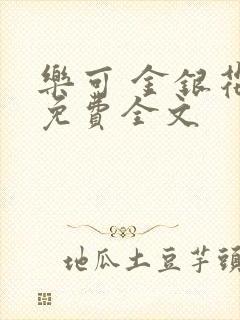 樂可 金銀花
免費全文
地瓜土豆芋頭